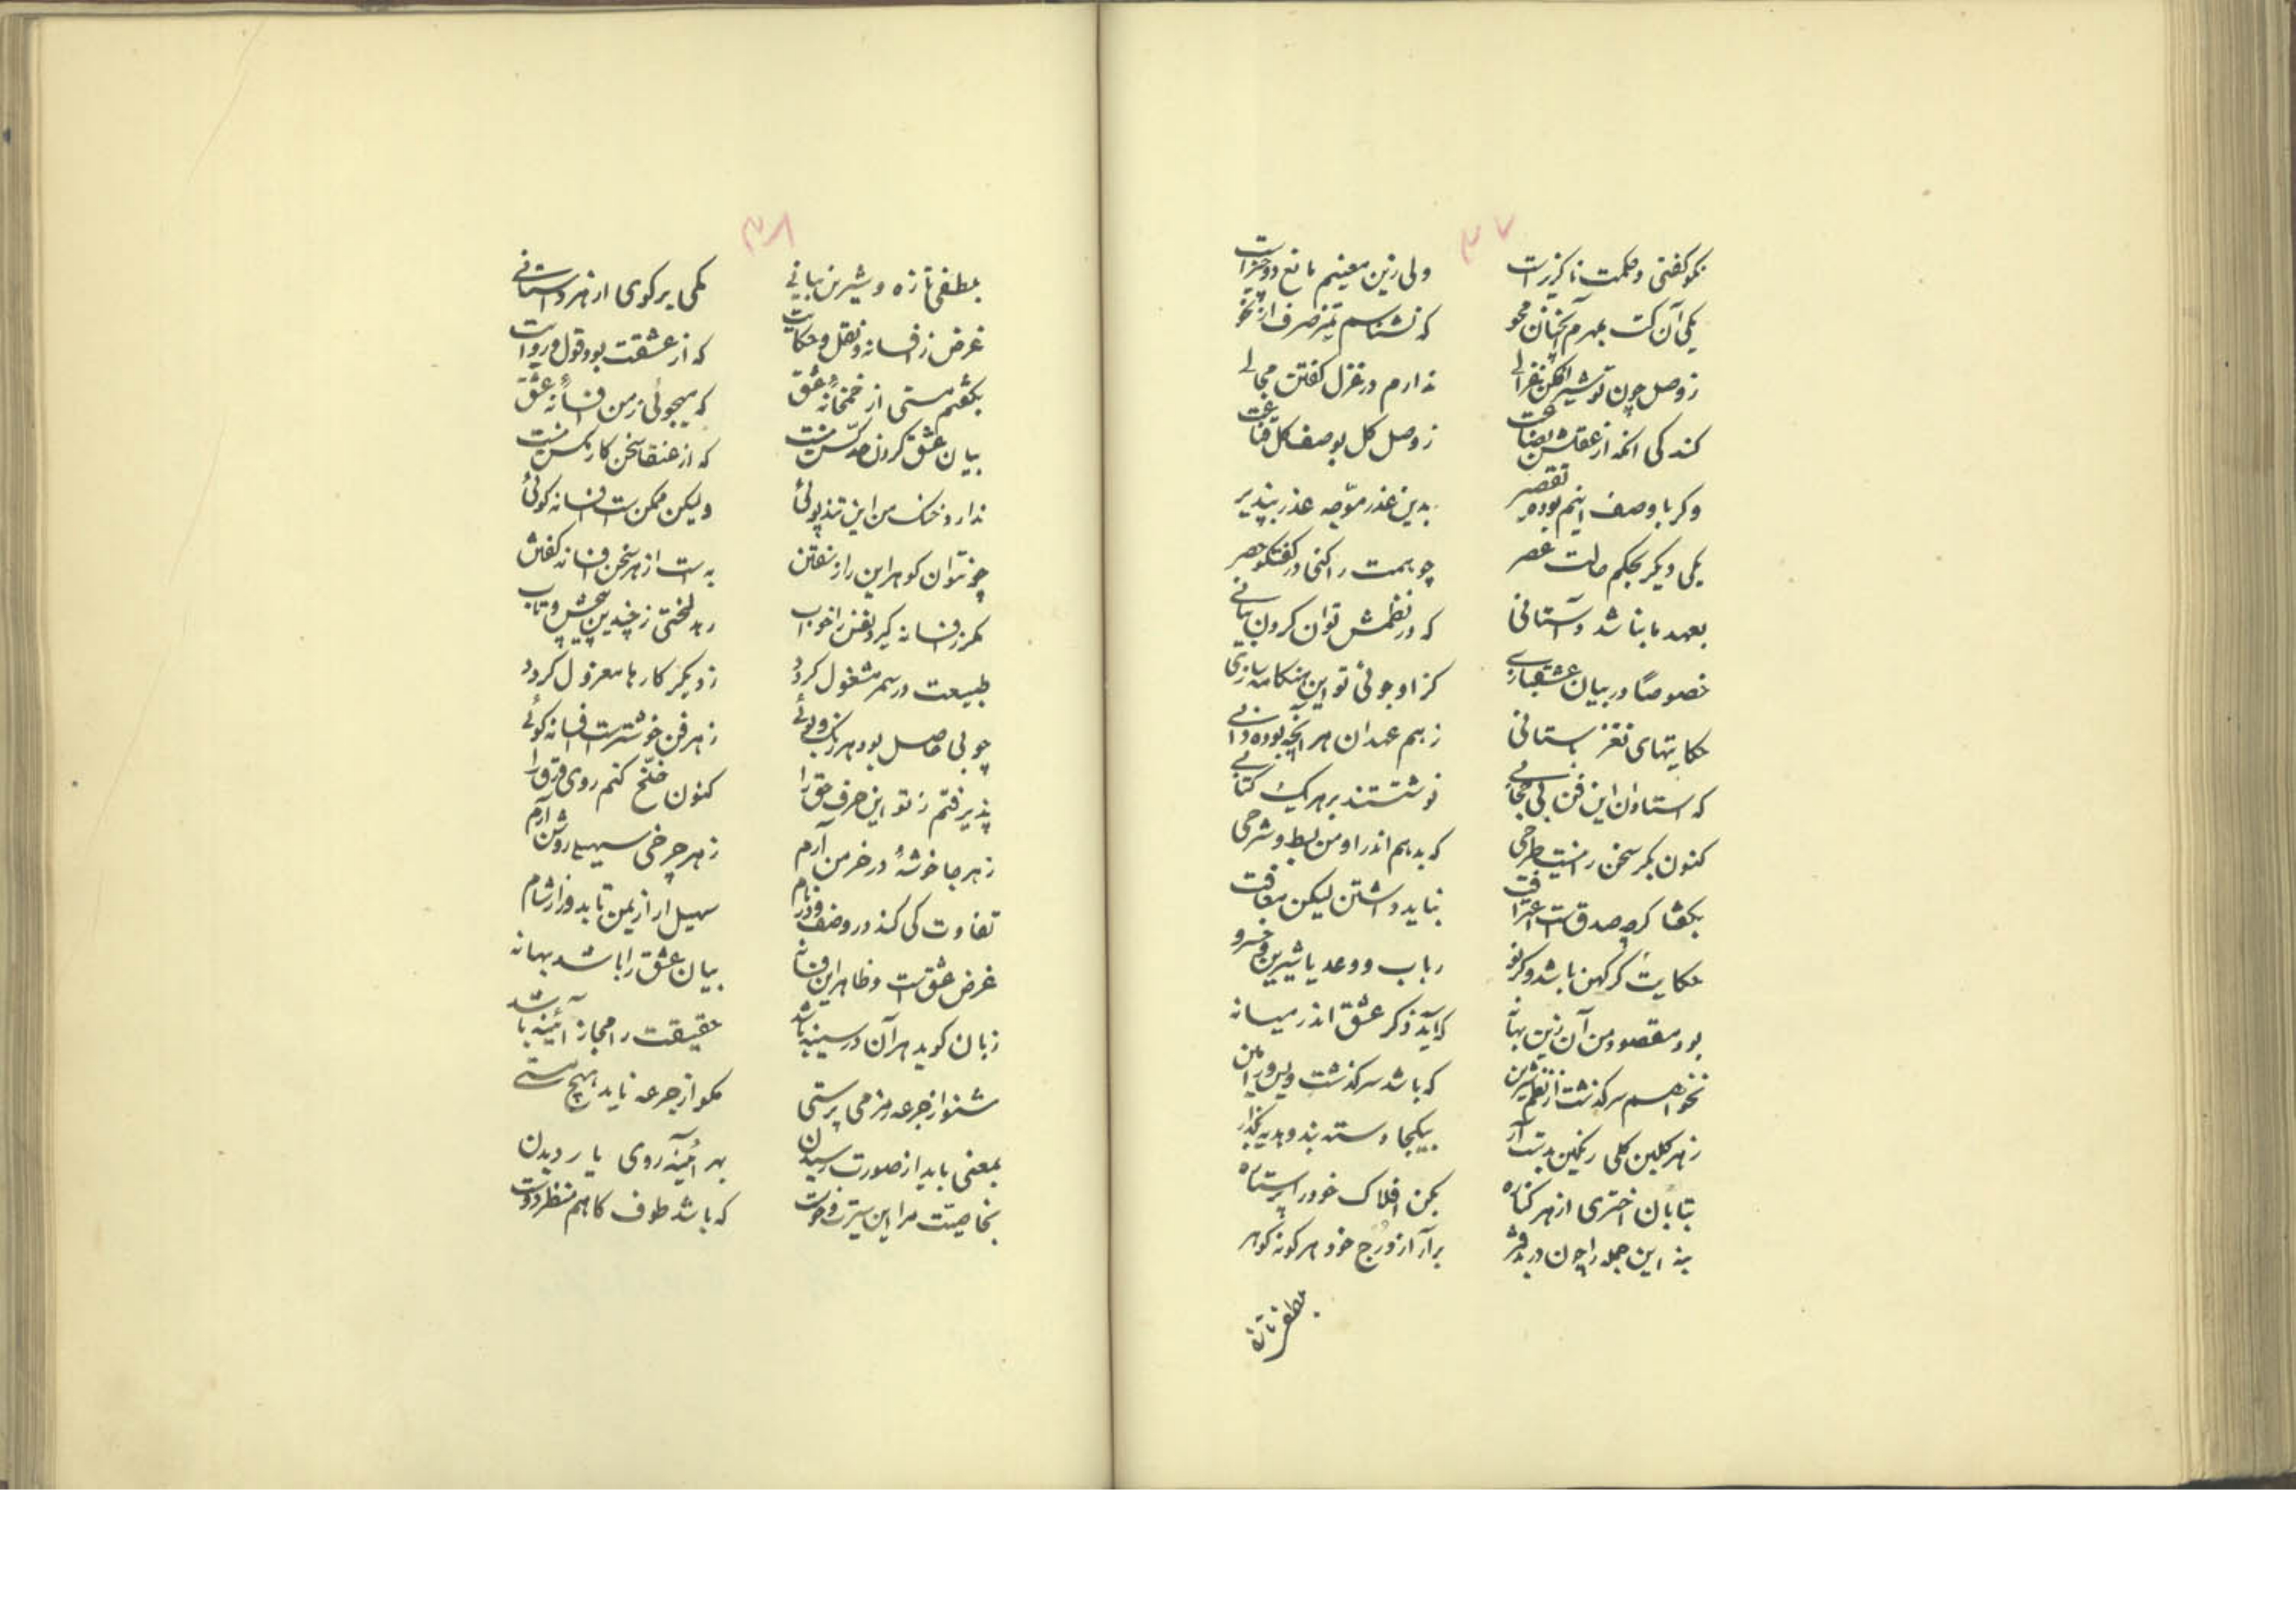 ۳۷
نکو گفتی و حکمت ناگزیرست ولی زین معنیم مانع دو چیزست
یکی آن کت بمهرم آنچنان محو که نشناسم تمیز صرف از نحو
ز وصل چون تو شیر افکن غزالی ندارم در غزل گفتن مجالی
کند کی آنکه از عقلش بضاعت ز وصل گل بوصف گل قناعت
وگر با وصف اینم بوده تقصیر بدین عذر موجه عذر بپذیر
یکی دیگر بحکم حالت عصر چو همت را کنی در گفتگو حصر
بعهد ما نباشد داستانی که در نظمش توان کردن بیانی
خصوصاً در بیان عشقبازی کز او جوئی تو این هنگامه سازی
حکایتهای نغز باستانی ز هم عهدان هر آنچه بوده دانی
که استادان این فن بی حجابی نوشتستند بر هر یک کتابی
کنون بکر سخن را نیست طرحی که بدهم اندر او من بسط و شرحی
بگفتا کرچه صدقست اعترافت نباید داشتن لیکن معافت
حکایت گر کهن باشد وگر نو رباب و وعد یا شیرین و خسرو
بود مقصود من آن زین بهانه که آید ذکر عشق اندر میانه
نخواهم سرگذشت از نظم شیرین که باشد سرگذشت ویس و رامین
ز هر گلبن گلی رنگین بدست آر بیکجا دسته بند و هدیه بگذار
بتابان اختری از هر کناره بکن افلاک خود را پر ستاره
بنه این جمله را چون در بدفتر برآر از درج خود هر گونه گوهر
بطفی تازه
۳۸
بطفی تازه و شیرین بیانی یکی برگوی از هر داستانی
غرض ز افسانه و نقل و حکایت که از عشقت بود قول و روایت
بگفتم مستی از خمخانه عشق که میجوئی ز من افسانه عشق
بیان عشق کردن حد کس نیست که از عنقا سخن کار مگس نیست
ندارد خنگ من این تندپوئی ولیکن ممکن ست افسانه گوئی
چو نتوان گوهر این راز سفتن به است از هر سخن افسانه گفتن
مگر ز افسانه گیرد نفس را خواب رهد لختی ز چندین پیچش و تاب
طبیعت در سمر مشغول گردد ز دیگر کارها معزول گردد
چو بی حاصل بود هر رنگ و بوئی ز هر فن خوشترست افسانه گوئی
پذیرفتم ز تو این حرف حق را کنون کنم روی ورق را
ز هر جا خوشهٔ در خرمن آرم ز هر چرخی سهیلی روشن آرم
تفاوت کی کند در وصف و در نام سهیل ار از یمن تابد و از شام
غرض عشق ست و ظاهر این فسانه بیان عشق را باشد بهانه
زبان گوید هر آن در سینه باشد حقیقت را مجاز آئینه باشد
شنو از جرعه رمز می پرستی مگو از جرعه ناید هیچ مستی
بمعنی باید از صورت رسیدن بهر آئینه روی یار دیدن
بخاصیت مرا این سیرت و خوست که باشد طوف گاهم منظر دوست